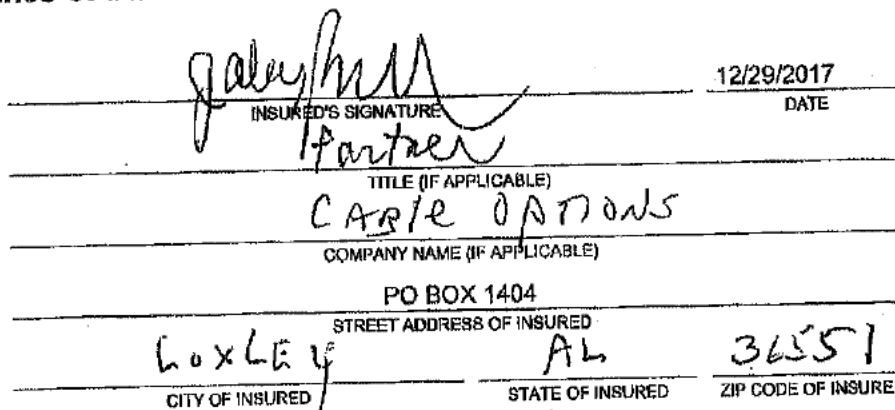 12/29/2017
INSURED'S SIGNATURE DATE
Partner
TITLE (IF APPLICABLE)
CABlE OPTIONS
COMPANY NAME (IF APPLICABLE)
PO BOX 1404
STREET ADDRESS OF INSURED
LoxLEy AL 36551
CITY OF INSURED STATE OF INSURED ZIP CODE OF INSURE